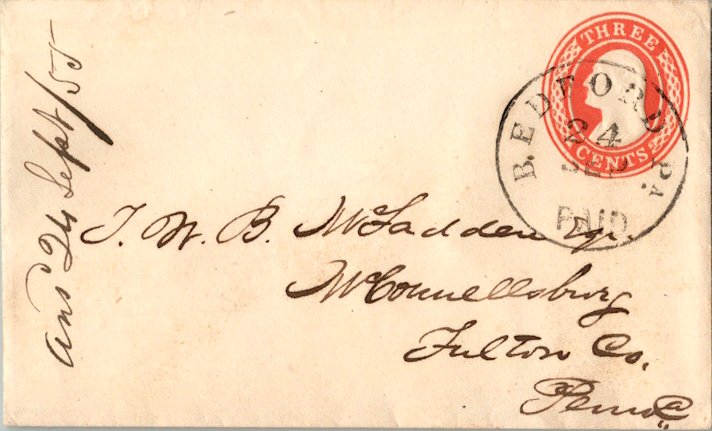 THREE
CENTS
BEDFORD Pa.
24
SEP
PAID
Ansd 24 Sept/55
T. W. B. McFadden Esqr.
McConnellsburg
Fulton Co.
Penna